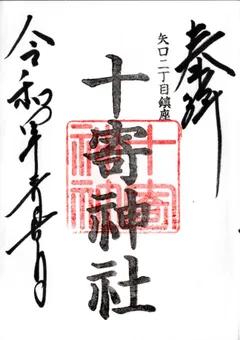 奉拝
矢口二丁目鎮座
十寄神社
十寄神社
令和